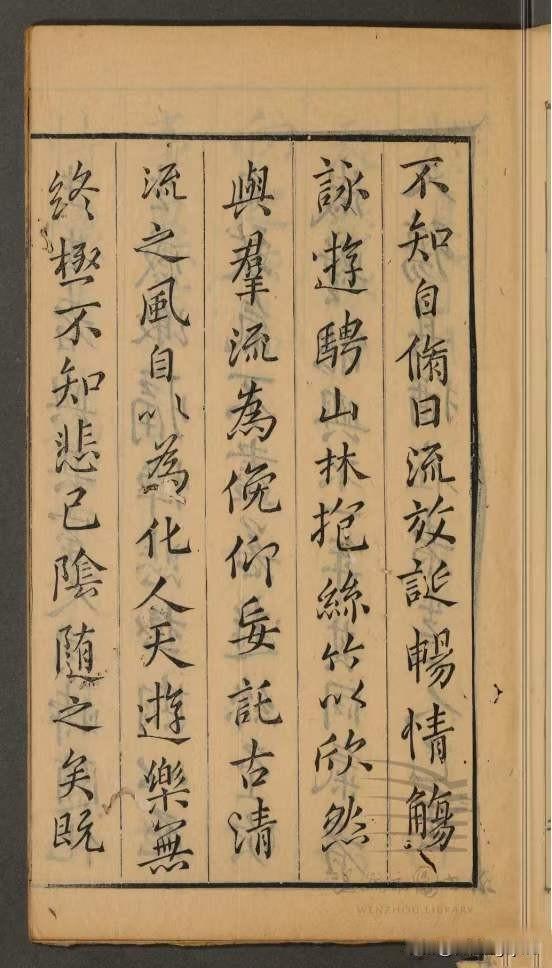 不知自脩日流放誕暢情觴
詠遊騁山林抱絲竹以欣然
與羣流為俛仰妄託古清
流之風自以為化人天遊樂無
終極不知悲已隂随之矣既
WENZHOU LIBRARY